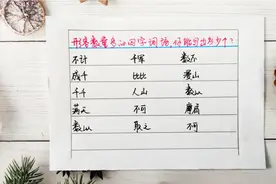 形容数量多的四字词语,你能写出多少个?
不计 千军 数不
成千 比比 漫山
千千 人山 数以
满天 不可 摩肩
数以 取之 不可